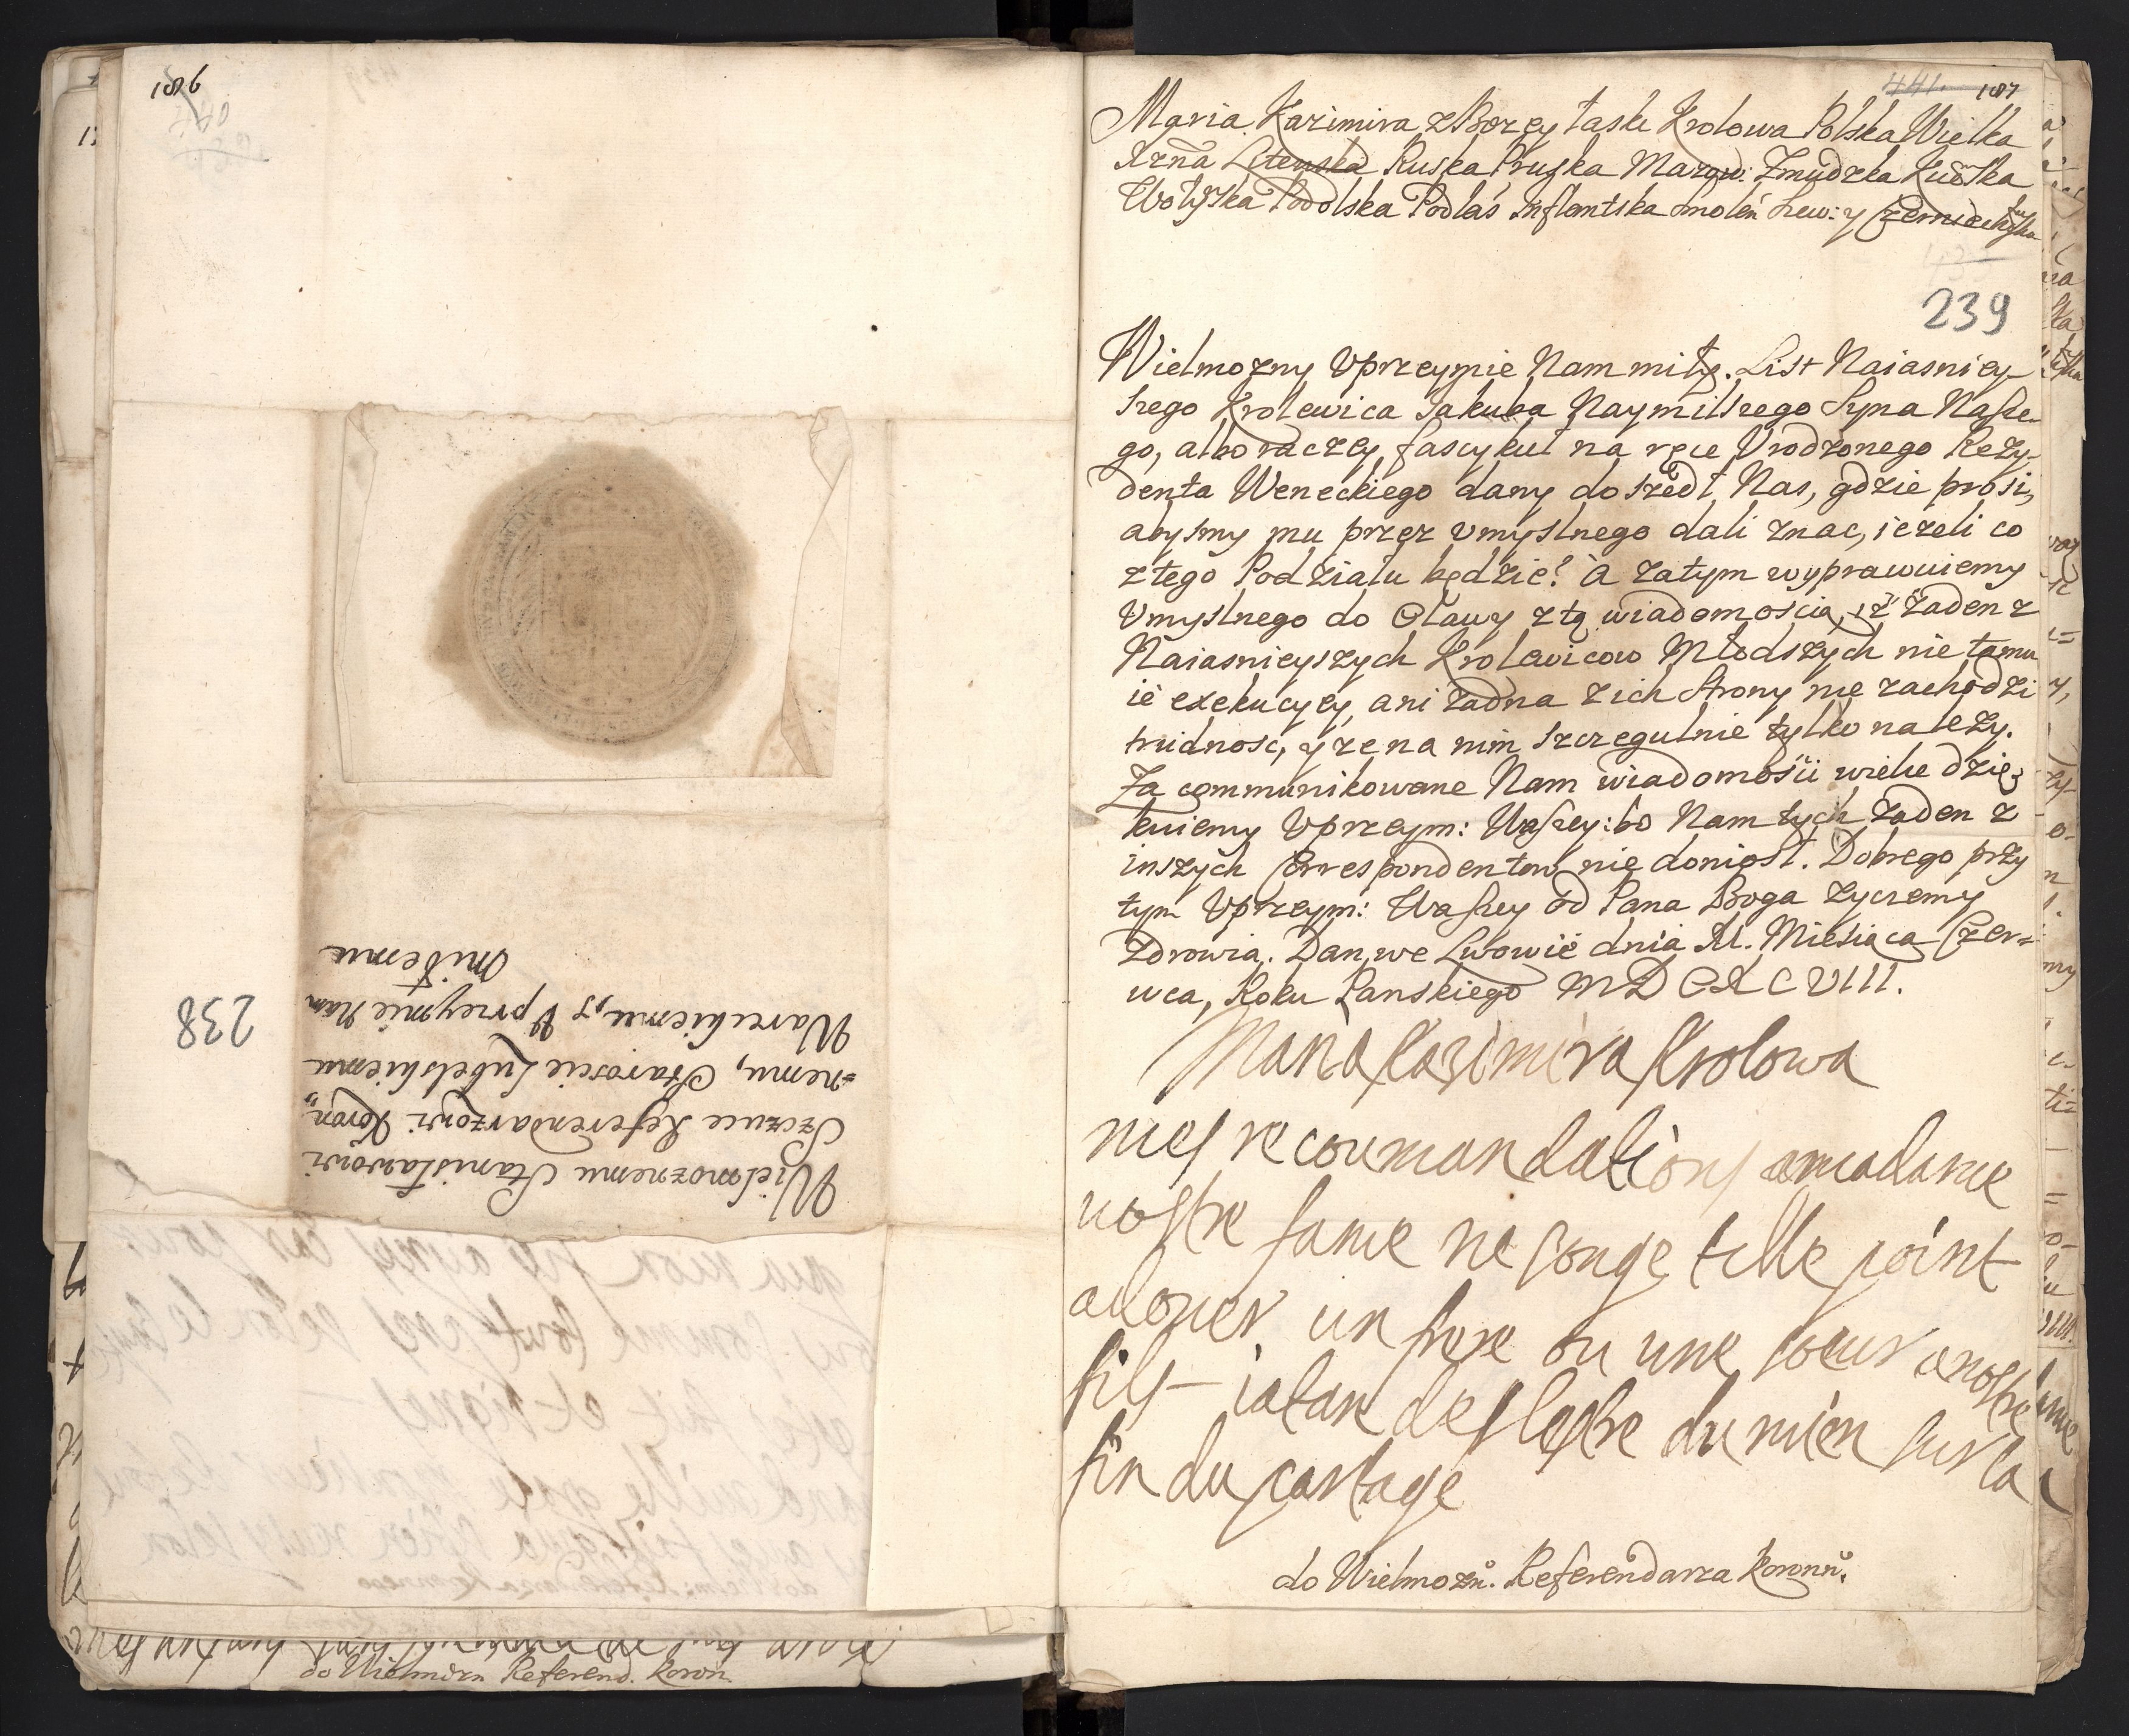 186
Wielmoznemu Stanisławowi
Szczuce Referendarzowi Koron„
=nemu, Staroscie Lubelskiemu
Wareckiemu, y Vprzeymie Nam
Miłemu
238
do Wielmozn Referend. Koron.
441. 187
Maria Kazimira z Bozey łaski Krolowa Polska Wielka
Xzna Litewska Ruska Pruska Mazow: Zmudzka Kiiowska
Wołyska Podolska Podlas Inflantska Smolen Siew: y Czerniechowska
239
Wielmozny Vprzeymie Nam miły. List Naiasniey-
szego Krolewica Jakuba Naymilszego Syna Nasze-
go, albo raczey fascykuł na ręce Vrodzonego Rezy-
denta Weneckiego dany doszedł Nas, gdzie prosi,
abysmy mu przez vmyslnego dali znac, iezeli co
z tego Podziału będzie? A zatym wyprawuiemy
Vmyslnego do Oławy z tą wiadomoscią, iż żaden z
Naiasnieyszych Krolewicow Młodszych nie tamu
ie exekucyey, ani żadna z ich Strony nie zachodzi
trudnosc, y ze na nim szczegulnie tylko nalezy.
Za communikowane Nam wiadomosci wielce dzię-
kuiemy Vprzeym: Waszey: bo Nam tych żaden z
inszych Correspondentow nie doniosł. Dobrego przy
tym Vprzeym: Waszey od Pana Boga zyczemy
zdrowia. Dan we Lwowie dnia XI. Miesiąca Czer=
wca, Roku Panskiego MDCXCVIII.
Maria Kazimira Krolowa
mes recoumandations amadame
vostre fame ne songe telle point
adoner un frere ou une soeur anostre
fils – iatan des lestre du mien sur la
fin du partage
do Wielmozn. Referendarza Koronn.